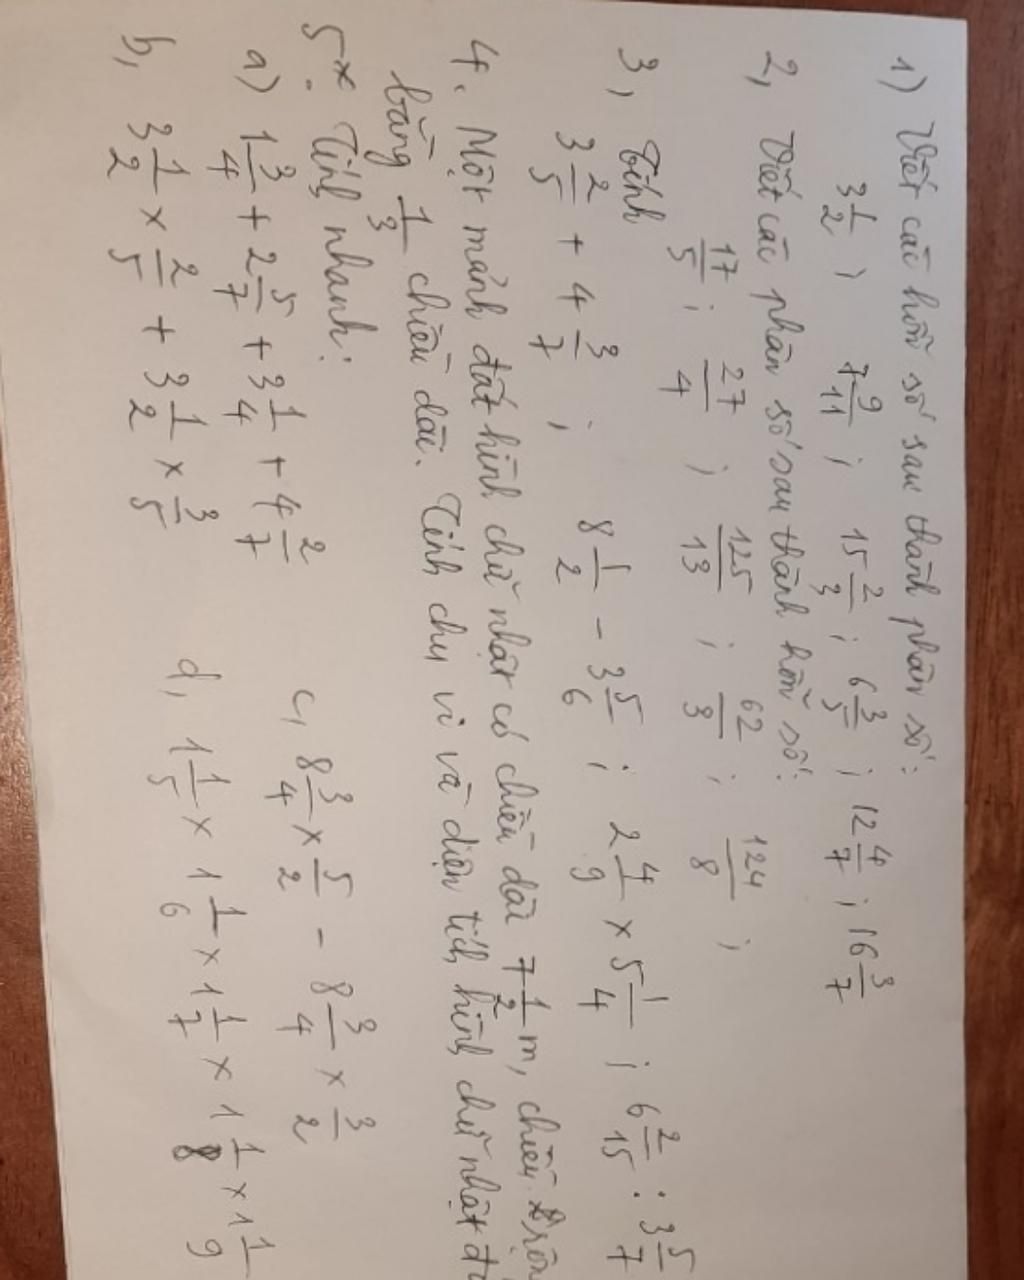 1) Viết các hỗn số sau thành phân số:
3 1/2 ; 7 9/11 ; 15 2/3 ; 6 3/5 ; 12 4/7 ; 16 3/7
2, Viết các phân số sau thành hỗn số:
17/5 ; 27/4 ; 125/13 ; 62/3 ; 124/8 ;
3, Tính
3 2/5 + 4 3/7 ; 8 1/2 - 3 5/6 ; 2 4/9 × 5 1/4 ; 6 2/15 : 3 5/7
4. Một mảnh đất hình chữ nhật có chiều dài 7 1/2 m, chiều
bằng 1/3 chiều dài. Tính chu vi và diện tích hình chữ nhật
5* Tính nhanh:
a) 1 3/4 + 2 5/7 + 3 1/4 + 4 2/7 c, 8 3/4 × 5/2 - 8 3/4 × 3/2
b, 3 1/2 × 2/5 + 3 1/2 × 3/5 d, 1 1/5 × 1 1/6 × 1 1/7 × 1 1/8 × 1 1/9